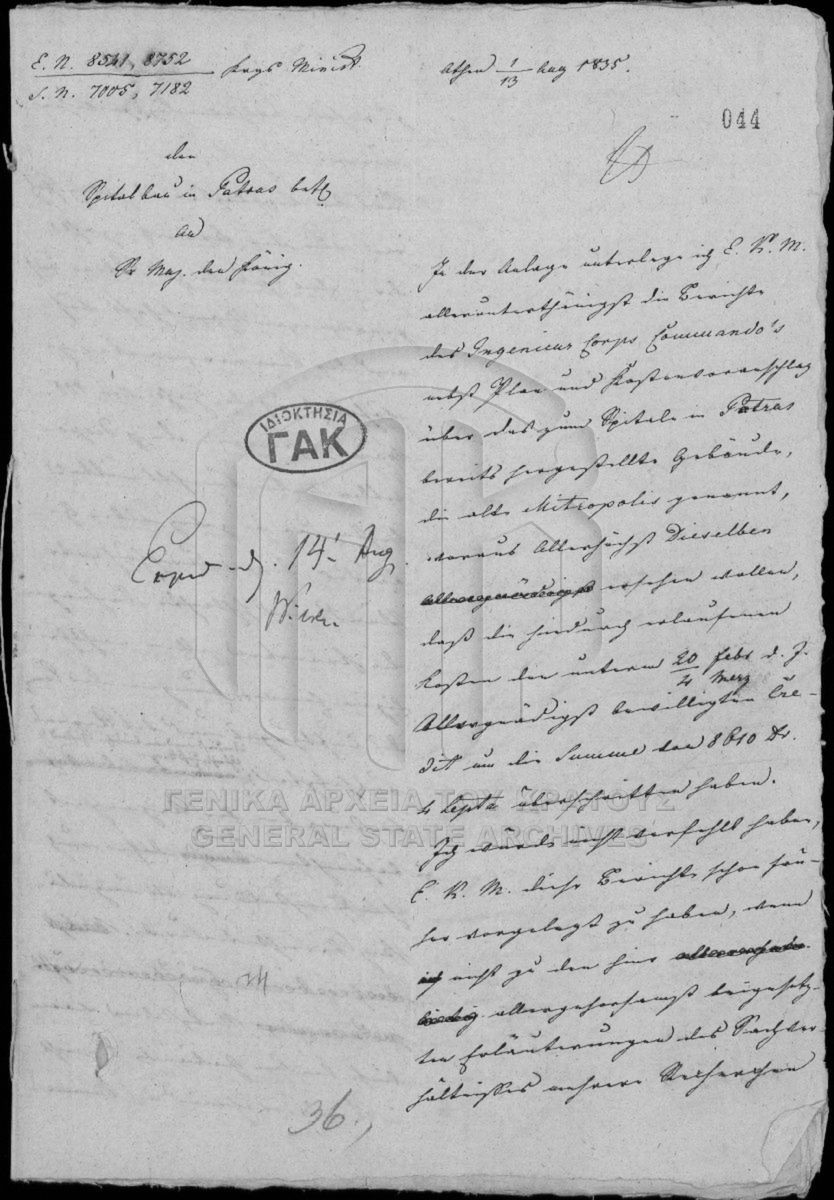 E. N. 8541, 8752
S. N. 7005, 7182
Krgs Minist.
Athen 1/13 Aug 1835.
044
den
Spitalbau in Patras betf
an
Sr Maj. den König.
In der Anlage unterlege ich E. K. M.
allerunterthänigst die Berichte
des Ingenieur Corps Commando's
nebst Plan und Kostenvoranschlag
über das zum Spitale in Patras
bereits hergestellte Gebäude,
die alte Mitropolis genannt,
woraus Allerhöchst Dieselben
ersehen wollen,
daß die hiedurch erlaufenen
Kosten den unterm 20 Febr/4 Merz d. J.
Allergnädigst bewilligten Cre-
dit um die Summe von 8610 Dr.
4 Lepta überschritten haben.
Ich würde nicht verfehlt haben,
E. K. M. diese Berichte schon frü-
her vorgelegt zu haben, wenn
nicht zu den hier
allergehorsamst beigesetz-
ten Erläuterungen des Sachver-
hältnisses mehrere Recherchen
ΙΔΙΟΚΤΗΣΙΑ
ΓΑΚ
14 Aug.
36.,
ΓΕΝΙΚΑ ΑΡΧΕΙΑ ΤΟΥ ΚΡΑΤΟΥΣ
GENERAL STATE ARCHIVES